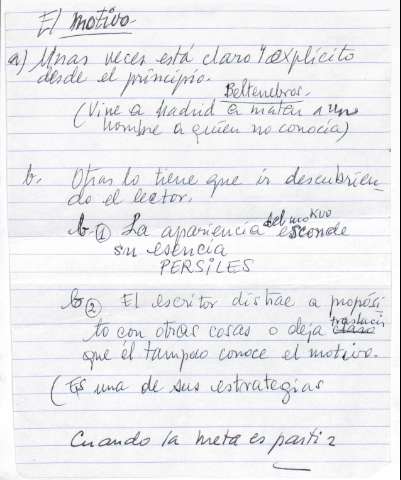 El motivo
a) Unas veces está claro y explícito
desde el principio.
Beltenebros.
(Vine a Madrid a matar a un
hombre a quien no conocía)
b. Otras lo tiene que ir descubrien-
do el lector.
b-① La apariencia del motivo esconde
su esencia
PERSILES
b② El escritor distrae a propósi
to con otras cosas o deja traslucir
que él tampoco conoce el motivo.
(Es una de sus estrategias
Cuando la meta es partir